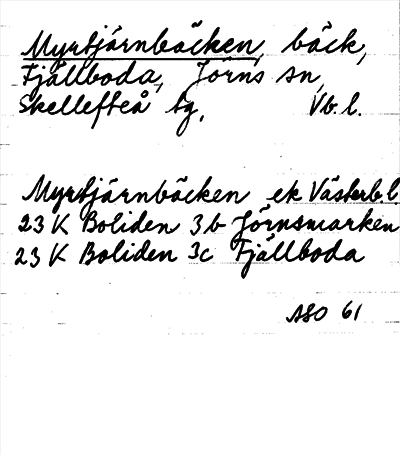 Myrtjärnbäcken, bäck,
Fjällboda, Jörns sn,
Skellefteå tg, Vb. l.
Myrtjärnbäcken ek Västerb. l
23 K Boliden 3b Jörnsmarken
23 K Boliden 3c Fjällboda
ASO 61